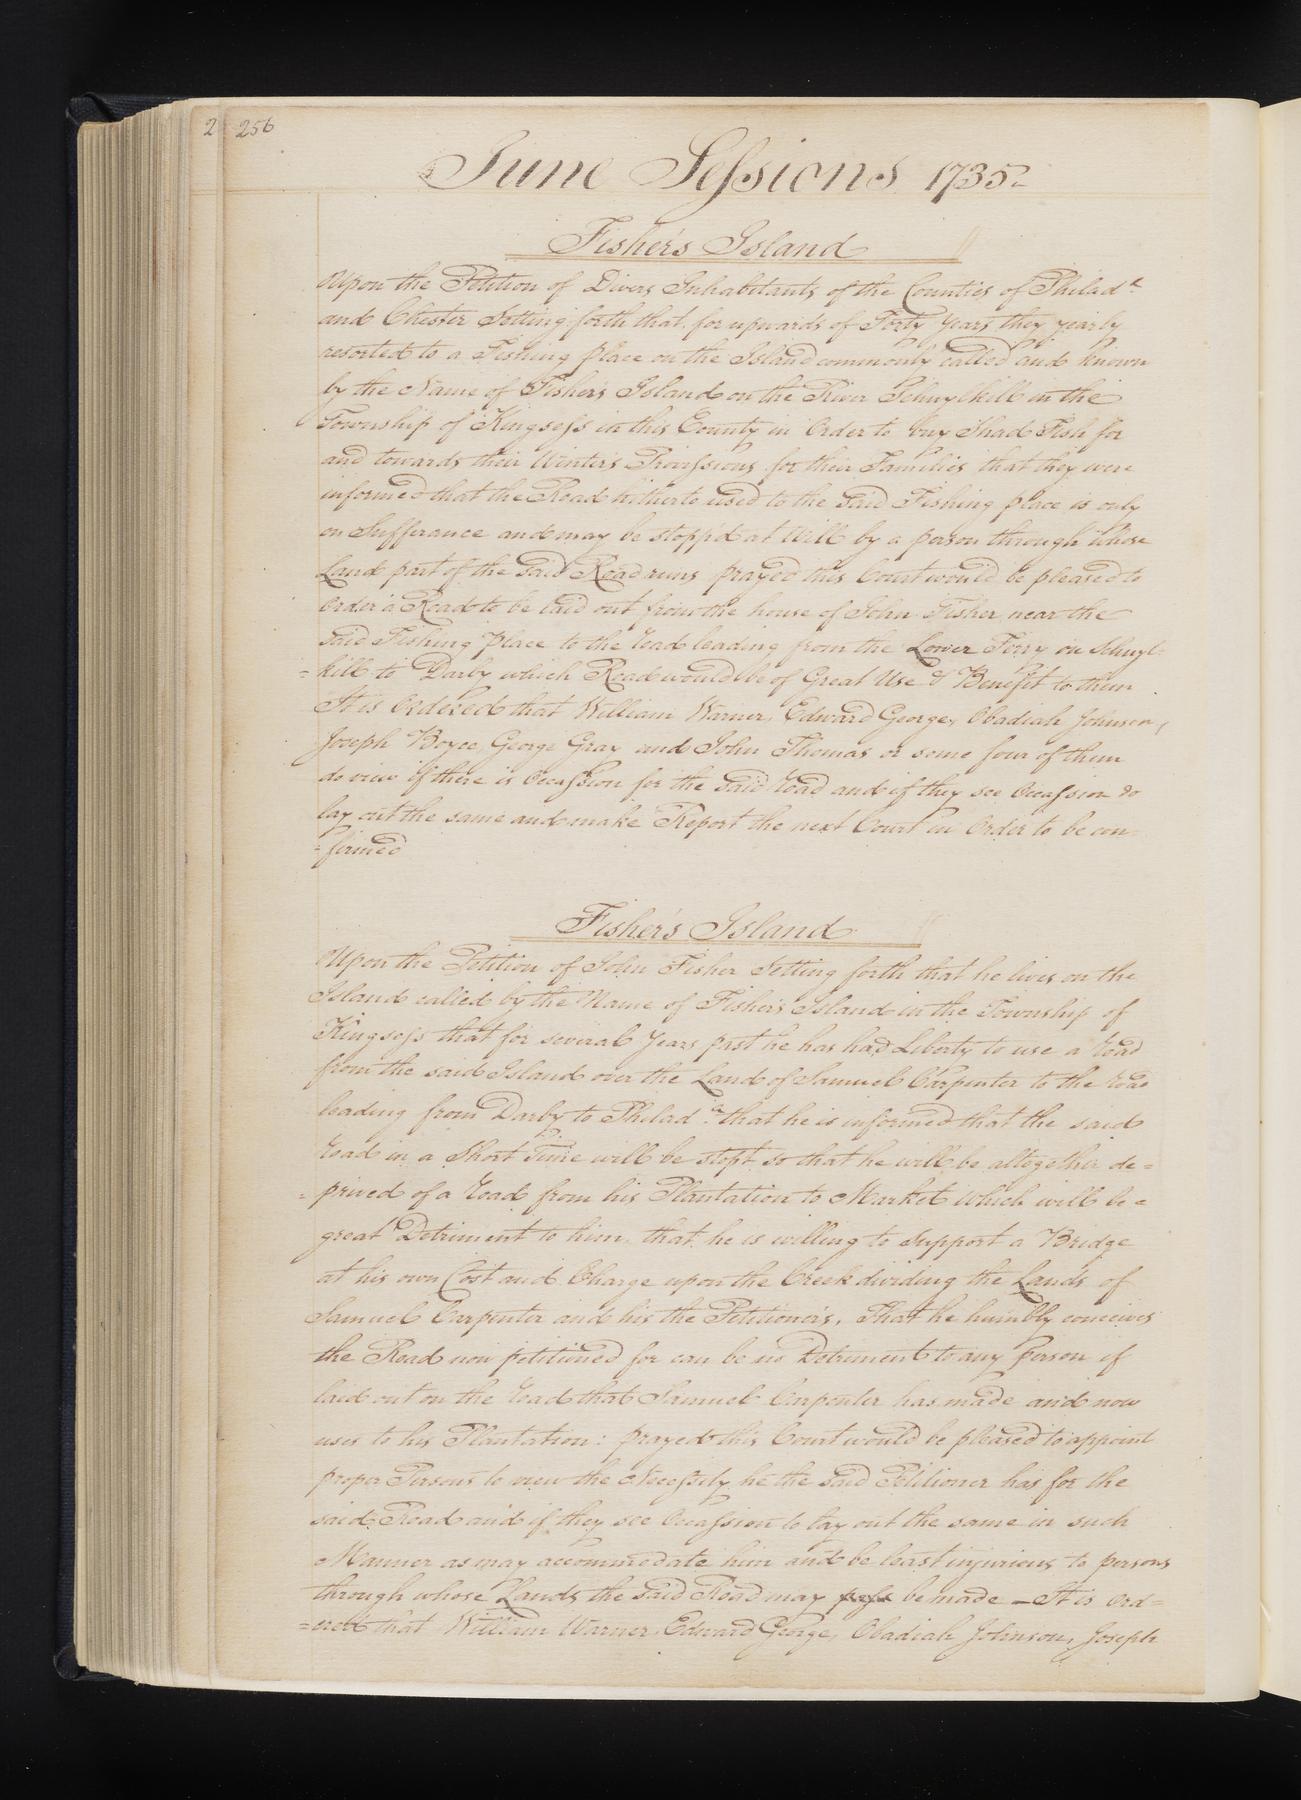 2 256
June Sessions 1735
Fisher's Island
Upon the Petition of Divers Inhabitants of the Counties of Philad.a
and Chester Setting forth that for upwards of Forty Years they yearly
resorted to a Fishing place on the Island commonly called and known
by the Name of Fisher's Island on the River Schuylkill in the
Township of Kingsess in this County in Order to buy Shad Fish for
and towards their Winter's Provissions for their Families that they were
informed that the Road hitherto used to the said Fishing place is only
on Sufferance and may be stopp'd at Will by a person through whose
Land part of the said Road runs prayed this Court would be pleased to
Order a Road to be laid out from the house of John Fisher near the
said Fishing place to the road leading from the Lower Ferry on Schuyl-
=kill to Darby which Road would be of Great Use & Benefit to them
It is Ordered that William Warner, Edward George, Obadiah Johnson,
Joseph Boyce, George Gray and John Thomas or some four of them
do view if there is Occassion for the said road and if they see Occassion do
lay out the same and make Report the next Court in Order to be con-
=firmed
Fisher's Island
Upon the Petition of John Fisher Setting forth that he lives on the
Island called by the Name of Fisher's Island in the Township of
Kingsess that for several Years past he has had Liberty to use a road
from the said Island over the Land of Samuel Carpenter to the road
leading from Darby to Philad.a that he is informed that the said
road in a Short Time will be stopt so that he will be altogether de=
=prived of a road from his Plantation to Market which will be a
great Detriment to him, that he is willing to support a Bridge
at his own Cost and Charge upon the Creek dividing the Lands of
Samuel Carpenter and his the Petitioner's, That he humbly conceives
the Road now petitioned for can be no Detriment to any person if
laid out on the road that Samuel Carpenter has made and now
uses to his Plantation: prayed this Court would be pleased to appoint
proper Persons to view the Necessity he the said Petitioner has for the
said Road and if they see Occassion to lay out the same in such
Manner as may accommodate him and be least injurious to persons
through whose Lands the said Road may pass be made — It is Ord=
=ered that William Warner, Edward George, Obadiah Johnson, Joseph